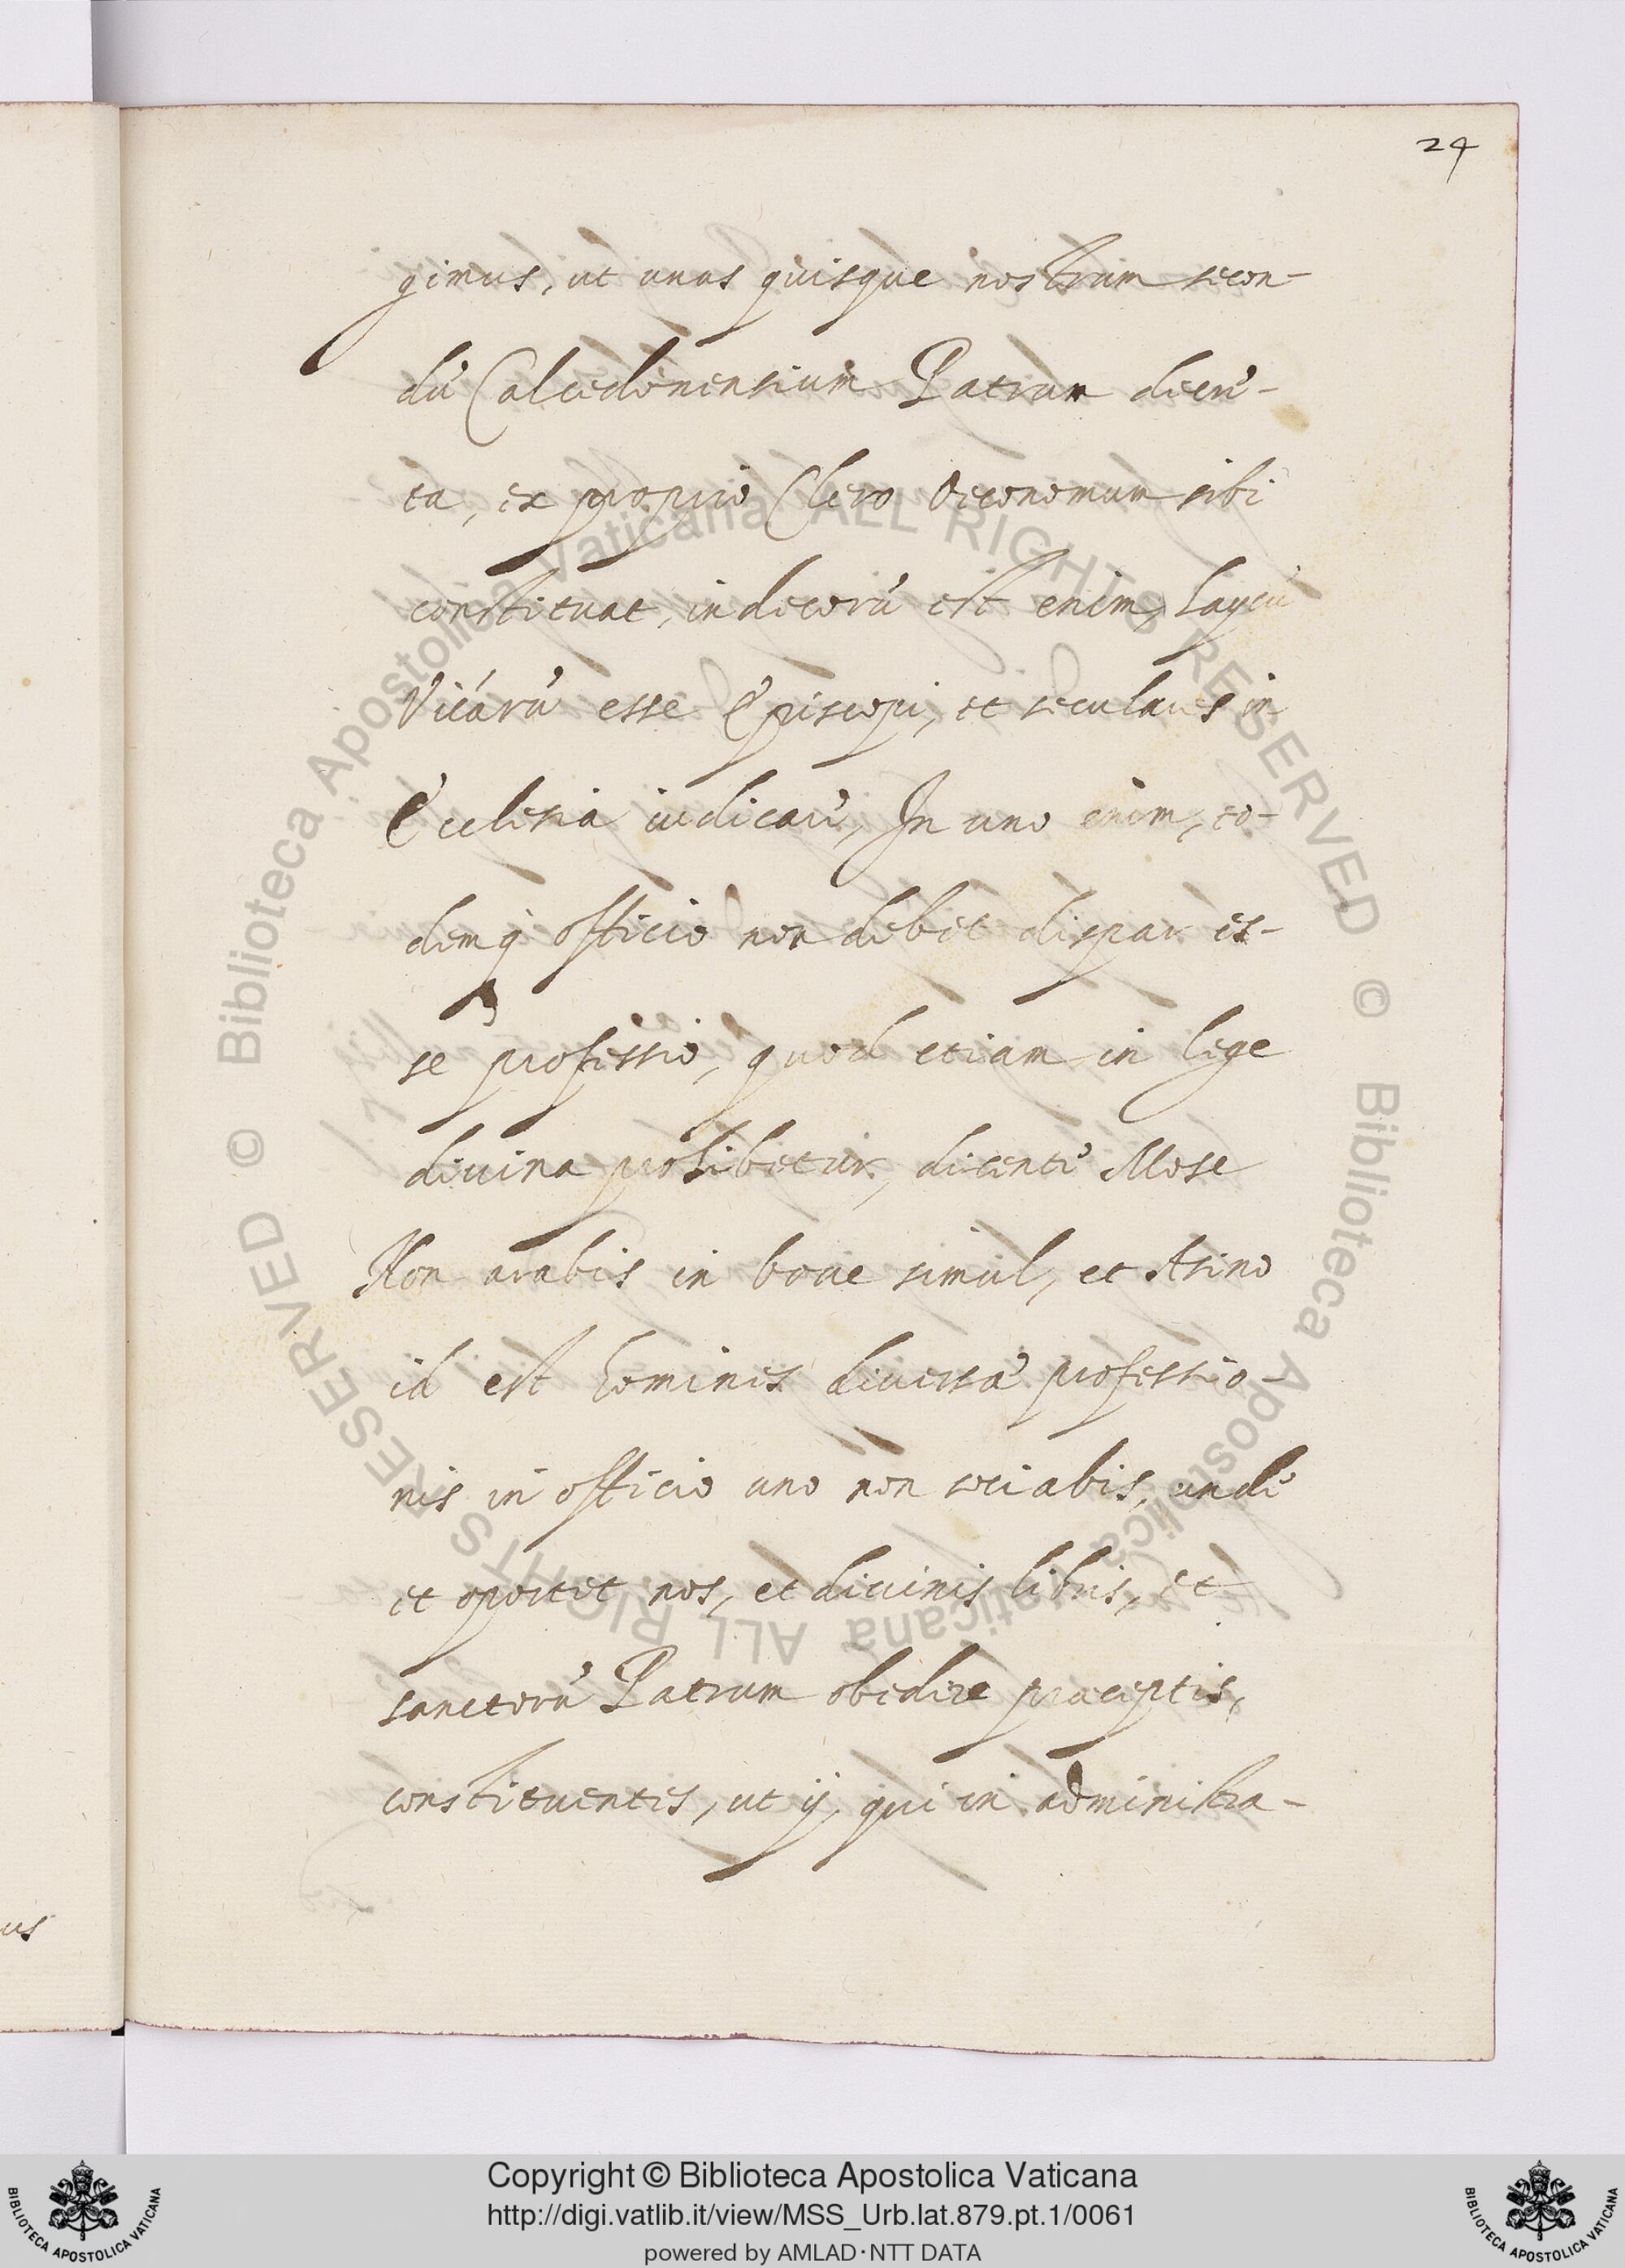 24
gimus, ut unus quisque nostrum secon-
dũ Calcedonensium Patrum decre-
ta, ex proprio Clero Oeconomum sibi
constituat, indecorũ est enim, Laycũ
Vicarũ esse Episcopi, et seculares in
Ecclesia iudicare, In uno enim, eo-
demq officio non debet dispar es-
se professio, quod etiam in lege
divina prohibetur, dicente Mose
Non arabis in boue simul, et Asino
id est homines diuersa professio-
nis in officio uno non sociabis, unde
et oportet nos, et diuinis libris, et
sanctorũ Patrum obedire praeceptis,
constituentes, ut ij, qui in administra-
us
© Biblioteca Apostolica Vaticana ALL RIGHTS RESERVED
© Biblioteca Apostolica Vaticana ALL RIGHTS RESERVED
Copyright © Biblioteca Apostolica Vaticana
http://digi.vatlib.it/view/MSS_Urb.lat.879.pt.1/0061
powered by AMLAD·NTT DATA
BIBLIOTECA APOSTOLICA VATICANA
BIBLIOTECA APOSTOLICA VATICANA